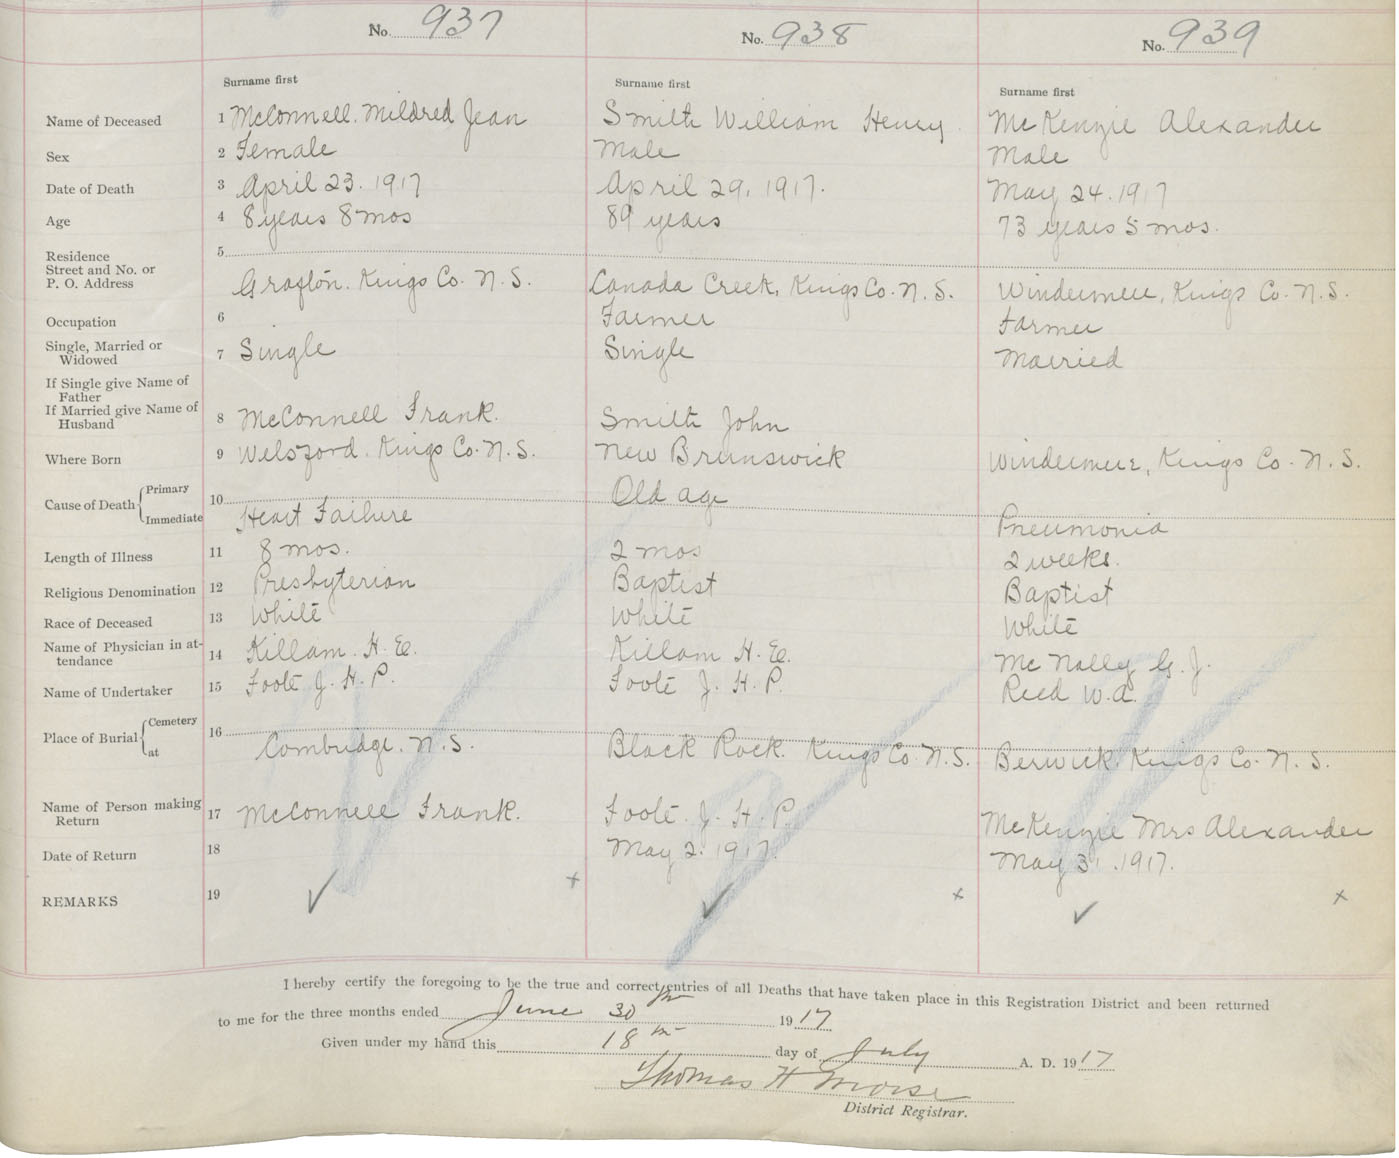 No. 937 No. 938 No. 939
Surname first Surname first Surname first
Name of Deceased 1 McConnell. Mildred Jean Smith William Henry. McKenzie Alexander
Sex 2 Female Male Male
Date of Death 3 April 23. 1917 April 29, 1917. May 24. 1917
Age 4 8 years 8 mos 89 years 73 years 5 mos.
Residence 5
Street and No. or
P. O. Address Grafton. Kings Co. N. S. Canada Creek, Kings Co. N. S. Windermere, Kings Co. N. S.
Occupation 6 Farmer Farmer
Single, Married or
Widowed 7 Single Single Married
If Single give Name of
Father
If Married give Name of
Husband 8 McConnell Frank. Smith John
Where Born 9 Welsford. Kings Co. N. S. New Brunswick Windermere, Kings Co. N. S.
Cause of Death Primary 10 Old age
Immediate Heart Failure Pneumonia
Length of Illness 11 8 mos. 2 mos 2 weeks.
Religious Denomination 12 Presbyterian Baptist Baptist
Race of Deceased 13 White White White
Name of Physician in at-
tendance 14 Killam. H. E. Killam H. E. McNally G. J.
Name of Undertaker 15 Foote J. H. P. Foote J. H. P. Reed W. A.
Place of Burial Cemetery 16
at Cambridge. N. S. Black Rock. Kings Co. N. S. Berwick. Kings Co. N. S.
Name of Person making
Return 17 McConnell Frank. Foote. J. H. P. McKenzie Mrs Alexander
Date of Return 18 May 2. 1917. May 31. 1917.
REMARKS 19 ✓ x ✓ x ✓ x
I hereby certify the foregoing to be the true and correct entries of all Deaths that have taken place in this Registration District and been returned
to me for the three months ended June 30th 1917
Given under my hand this 18th day of July A. D. 1917
Thomas H Morse
District Registrar.